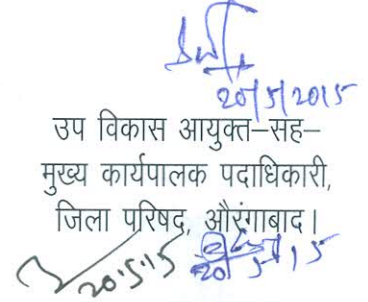 20/5/2015
उप विकास आयुक्त–सह–
मुख्य कार्यपालक पदाधिकारी,
जिला परिषद, औरंगाबाद।
20.5.15
20/5/15